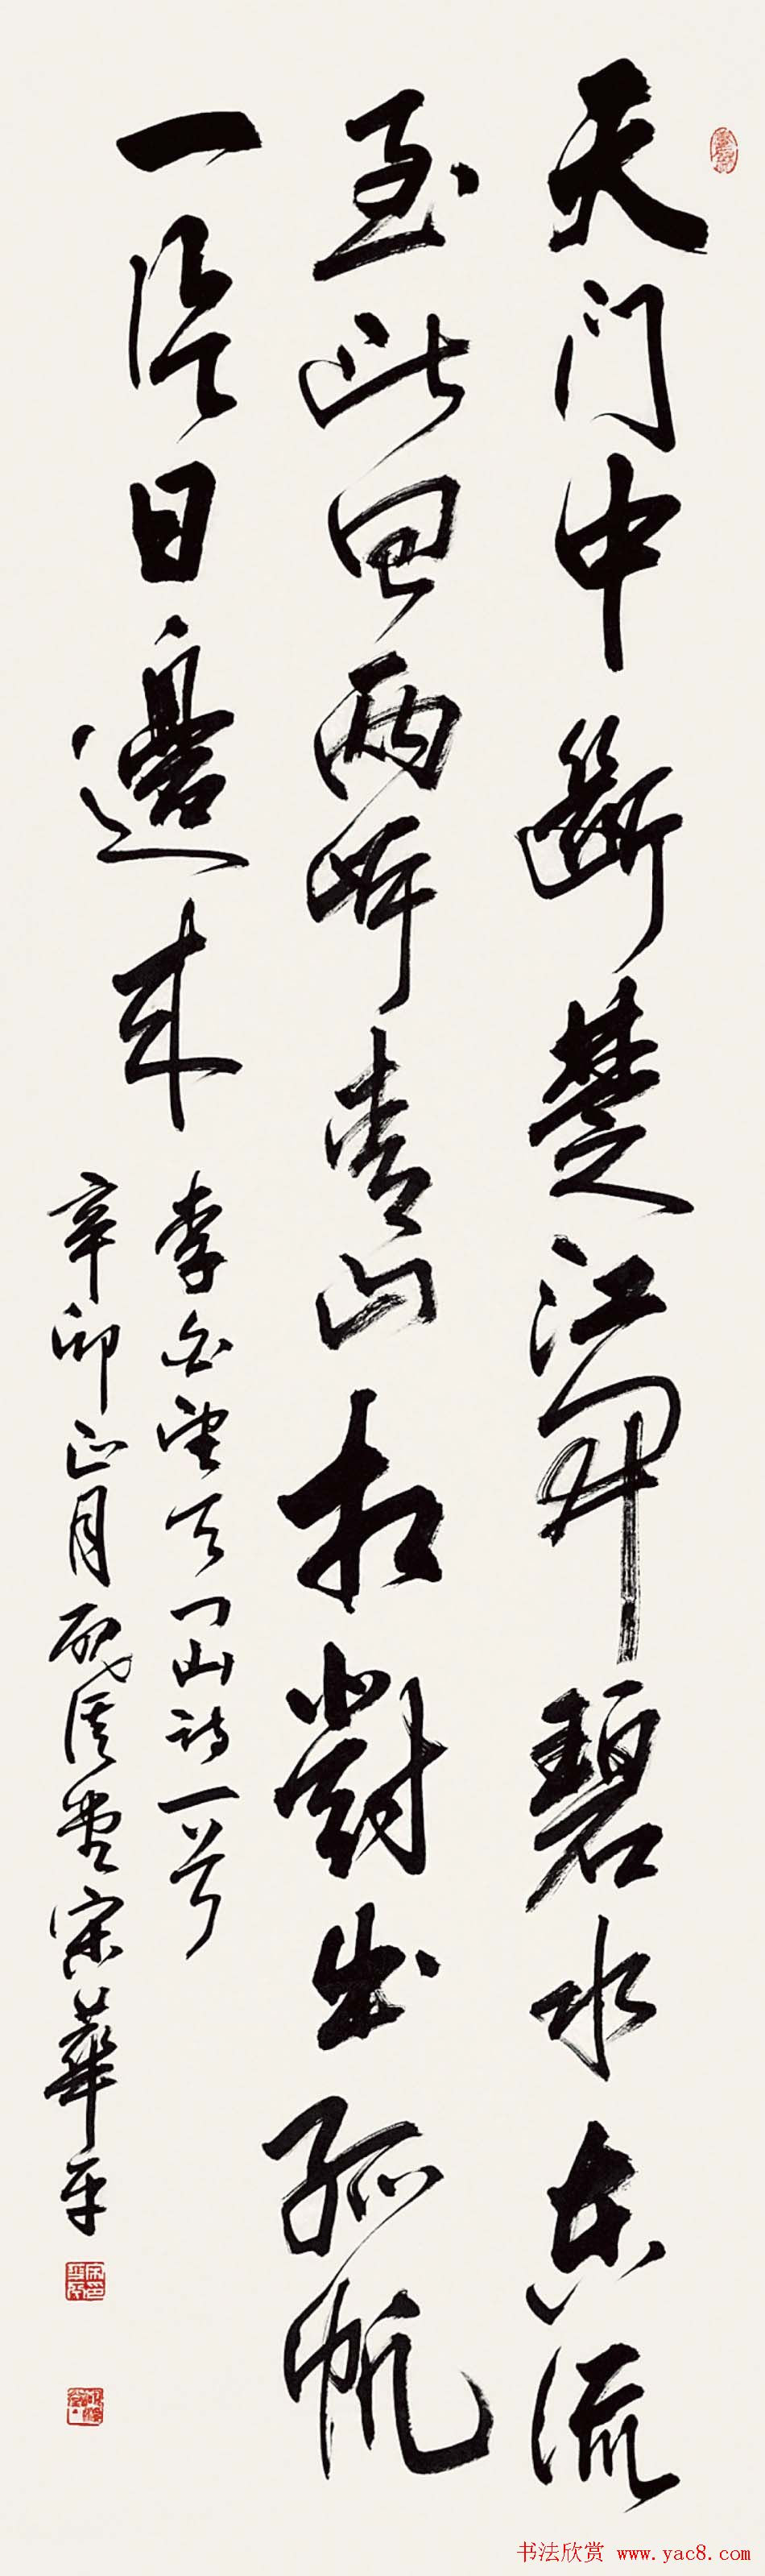 天门中斷楚江開碧水東流
至此回兩岸青山相對出孤帆
一片日邊来
李白望天门山詩一首
辛卯正月 宋華平
书法欣赏 www.yac8.com